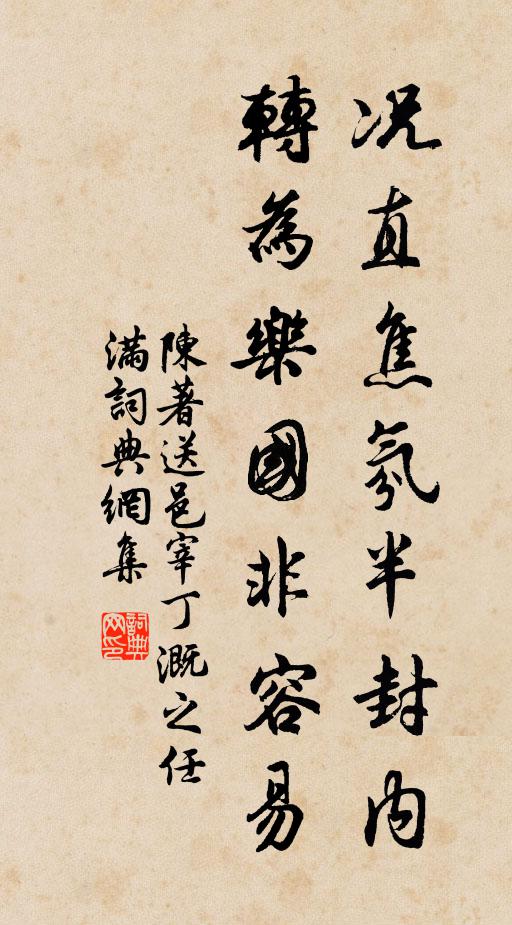 况直焦氛半封内
轉為樂國非容易
陳著送邑宰丁溉之任
滿詞典網集
詞典网印